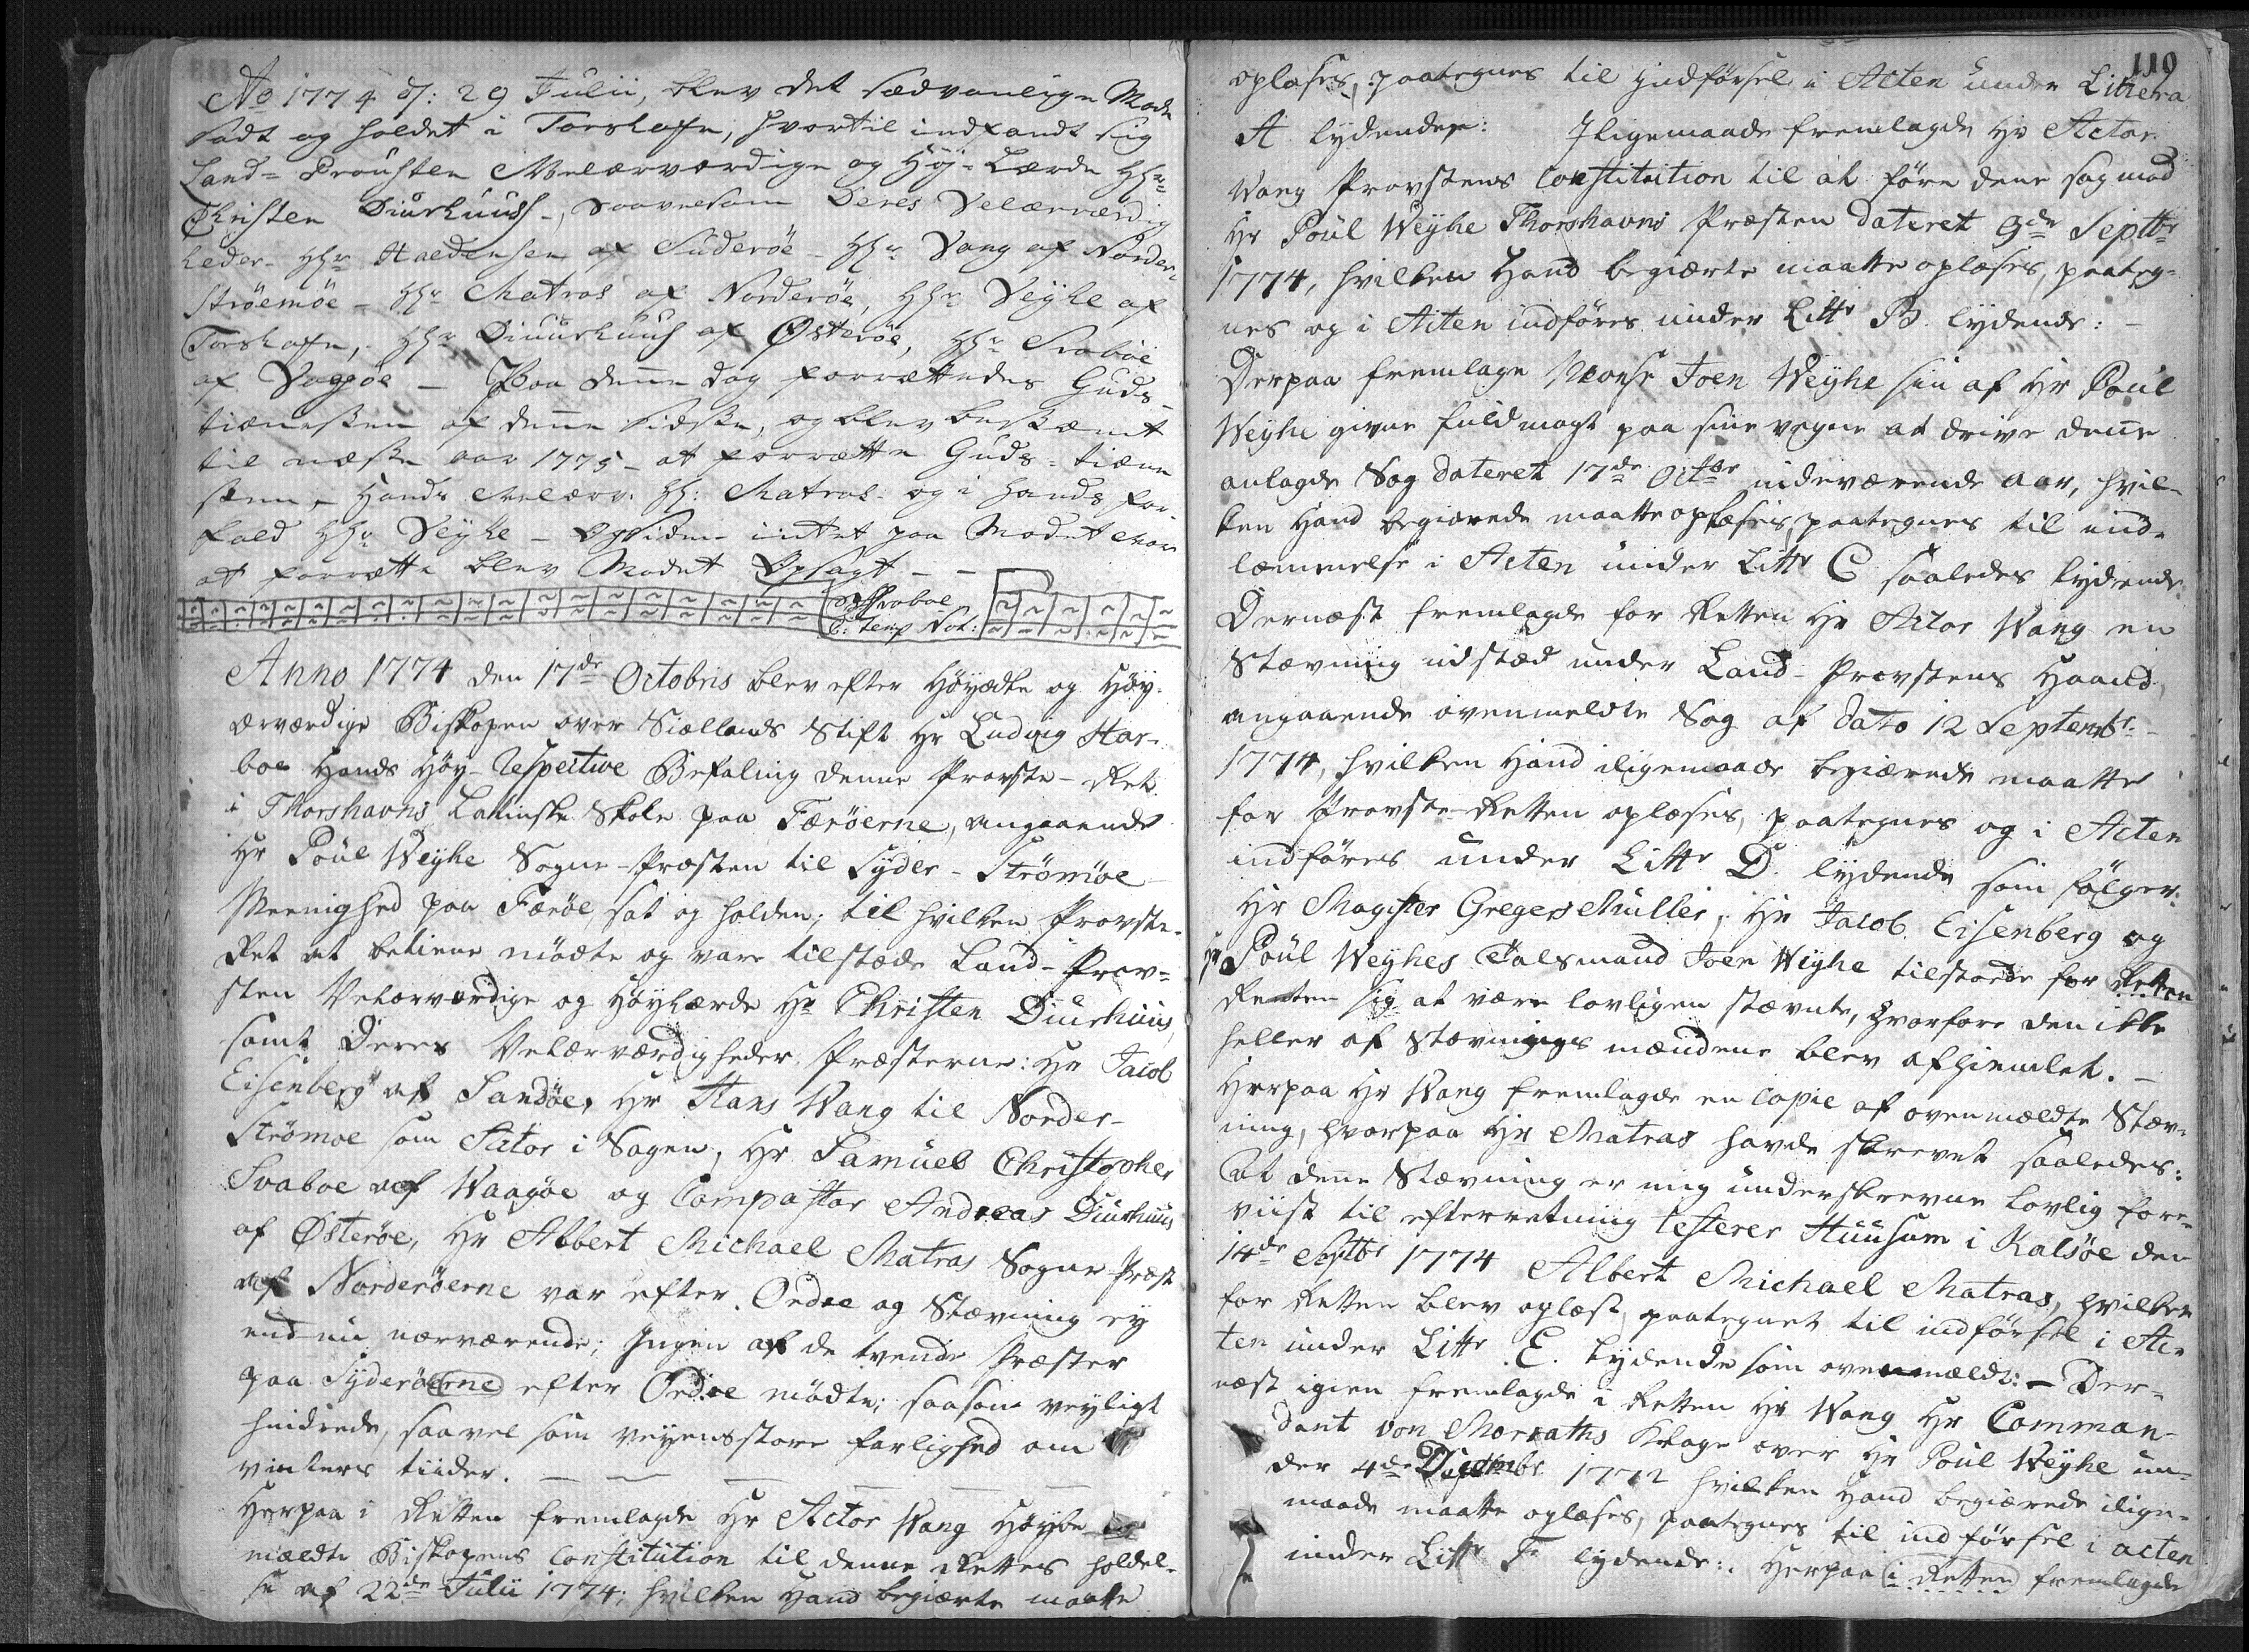 Ao 1774 d: 29 Julii, blev det sædvanlige Mode
sadt og holdet i Torshafn, hvortil indfandt sig
Land-Prousten Velærværdige og Høy-Lærde HHr
Christen Diurhuus, saavelsom Deres Velærværdig
heder HHr Haldensen af Suderöe HHr Vang af Norder-
Strøemöe - HHr Matras af Norderöe, HHr Veyhe af
Torshafn, HHr Diuurhuus af Østeröe, HHr Svaboe
af Vaagöe - Paa denne dag forrættedes Guds-
tienesten af denne sidste, og blev bestæmt
til næste aar 1775 - at forrætte Guds-tiene
sten, - Hands Velærv: HH: Matras og i hands for-
fald HHr Veyhe - Og siden intet paa Modet var
at forrætte blev Modet Opsagt - -
Svaboe
p: temp Not:
Anno 1774 den 17de Octobris blev efter Høyædle og Høy-
ærværdige Biskopen over Siællands Stift Hr Ludvig Har-
boe Hands Høy-Respective Befaling denne Provste-Ret
i Thorshavns Latinske Skole paa Færöerne, angaaende
Hr Poul Weyhe Sogne-Præsten til Syder-Strömöe
Meenighed paa Færöe, sat og holden; til hvilken Provste-
Ret at betiene mødte og vare tilstæde Land-Prov-
sten Velærværdige og Høylærde Hr Christen Diurhuus,
samt Deres Velærværdigheder Præsterne: Hr Jacob
Eisenberg af Sandöe, Hr Hans Wang til Norder-
Strömoe som Actor i Sagen, Hr Samuel Christopher
Svaboe af Waagöe og Compastor Andreas Diurhuus
af Østeröe, Hr Albert Michael Matras Sogne-Præst
af Norderöerne var efter Ordre og Stævning ey
endnu nærværende; Ingen af de tvende Præster
paa Syderöerne efter Ordre mödte; saasom veyligt
hindrede, saavel som veyens store farlighed om
vinters tiider.
Herpaa i Retten fremlagde Hr Actor Wang Høybe-
mældte Biskopens Constitution til denne Rettes holdel-
se af 22de Julii 1774; hvilken Hand begiærte maatte
110
oplæses, paategnes til indförsel i Acten under Littera
A lydendes: Iligemaade fremlagde Hr Actor
Wang Provstens Constitution til at före denne sag mod
Hr Poul Weyhe Thorshavns Præsten dateret 9de Septbr
1774, hvilken Hand begiærte maatte oplæses, paateg-
nes og i Acten indföres under Littr B. lydende: -
Derpaa fremlage Monsr Joen Weyhe sin af Hr Poul
Weyhe givne fuldmagt paa sine vegne at drive denne
anlagde Sag dateret 17de Octbr indeværende Aar, hvil-
ken Hand begiærede maatte oplæses, paategnes til ind-
lemmelse i Acten under Littr C saaledes lydende:
Dernæst fremlagde for Retten Hr Actor Wang en
Stævning udstæd under Land-Provstens Haand,
angaaende ovenmeldte Sag af dato 12 Septembr.
1774, hvilken Hand iligemaade begiærede maatte
for Provste-Retten oplæses, paategnes og i Acten
indföres under Littr D. lydende som fölger:
Hr Magister Gregers Muller, Hr Jacob Eisenberg og
Hr Poul Weyhes Talsmand Joen Weyhe tilstoede for Retten
Retten sig at være lovligen stævnte, hvorfore den ikke
heller af Stævnings mændene blev afhiemlet. -
Herpaa Hr Wang fremlagde en Copie af ovenmældte Stæv-
ning, hvorpaa Hr Matras havde skrevet saaledes:
At denne Stævning er mig underskrevne lovlig fore-
viist til efterretning testerer Huusum i Kalsöe den
14de Septbr 1774 Albert Michael Matras, hvilken
for Retten blev oplæst, paategnet til indförsel i Ac-
ten under Littr E. lydende som ovenmældt: - Der-
næst igien fremlagde i Retten Hr Wang Hr Comman-
dant von Morraths Klage over Hr Poul Weyhe un-
der 4de Decembr 1772 hvilken Hand begiærede ilige-
maade maatte oplæses, paategnes til indförsel i acten
under Littr F. lydende: Herpaa i Retten fremlagde